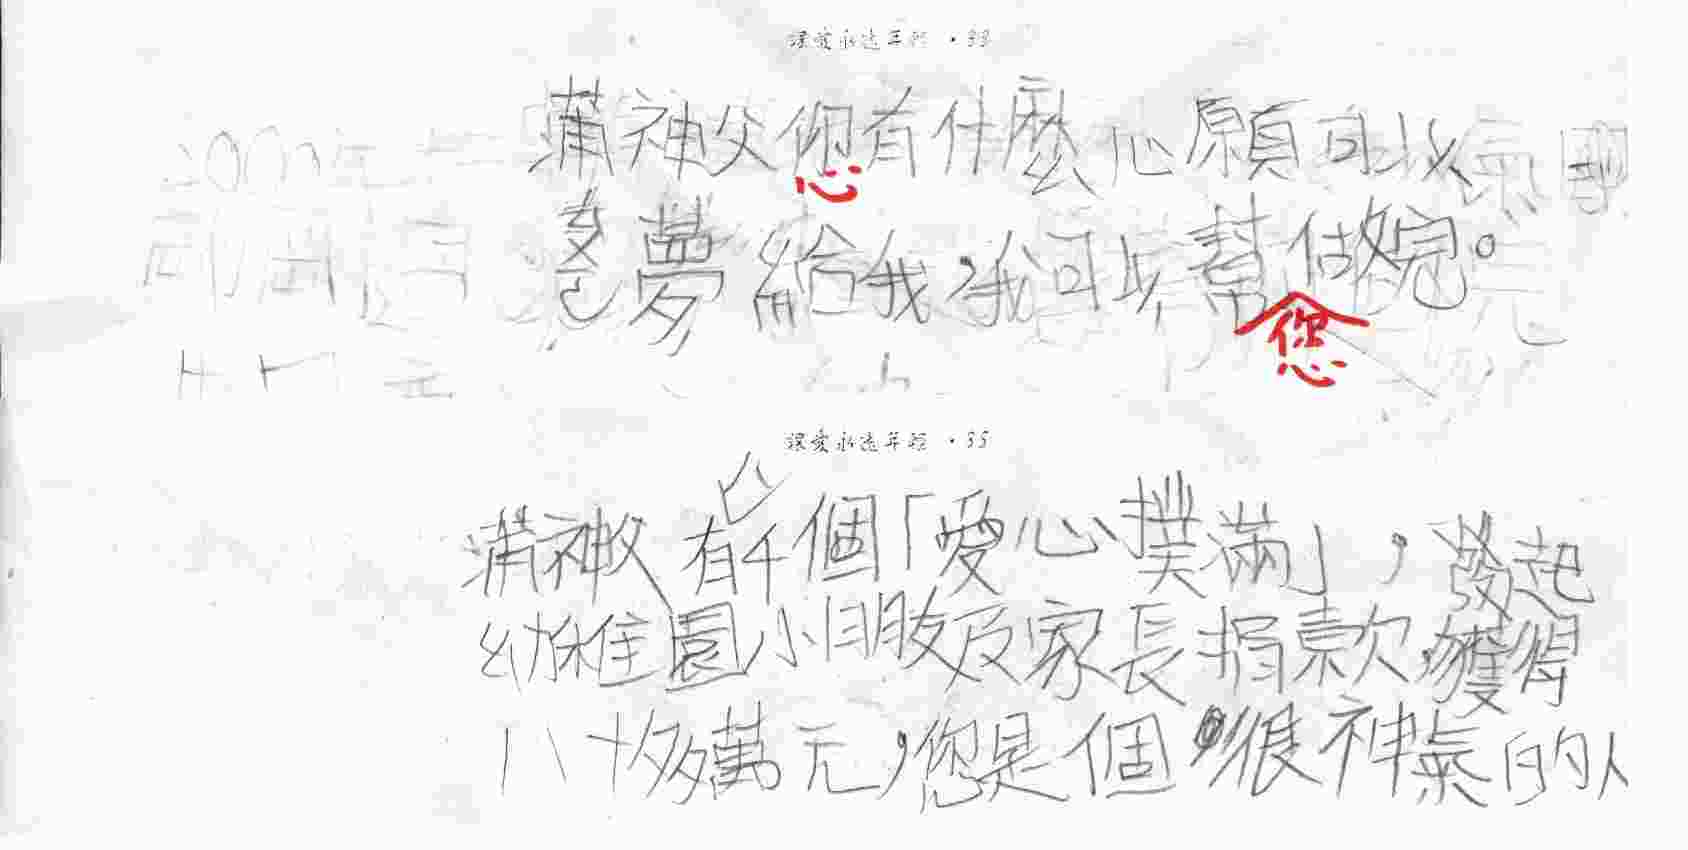 讓愛永遠年輕 · 33
蒲神父你有什麼心願可以
托夢給我，我可以幫做完。
心
您
讓愛永遠年輕 · 35
蒲神父有八千個「愛心撲滿」，發起
幼稚園小朋友及家長捐款，獲得
八十多萬元，您是個很神氣的人